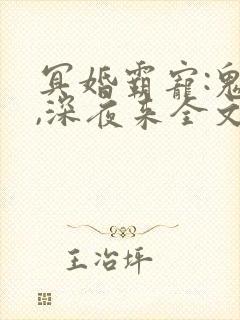 冥婚霸宠:鬼
,深夜来全文
王冶坪